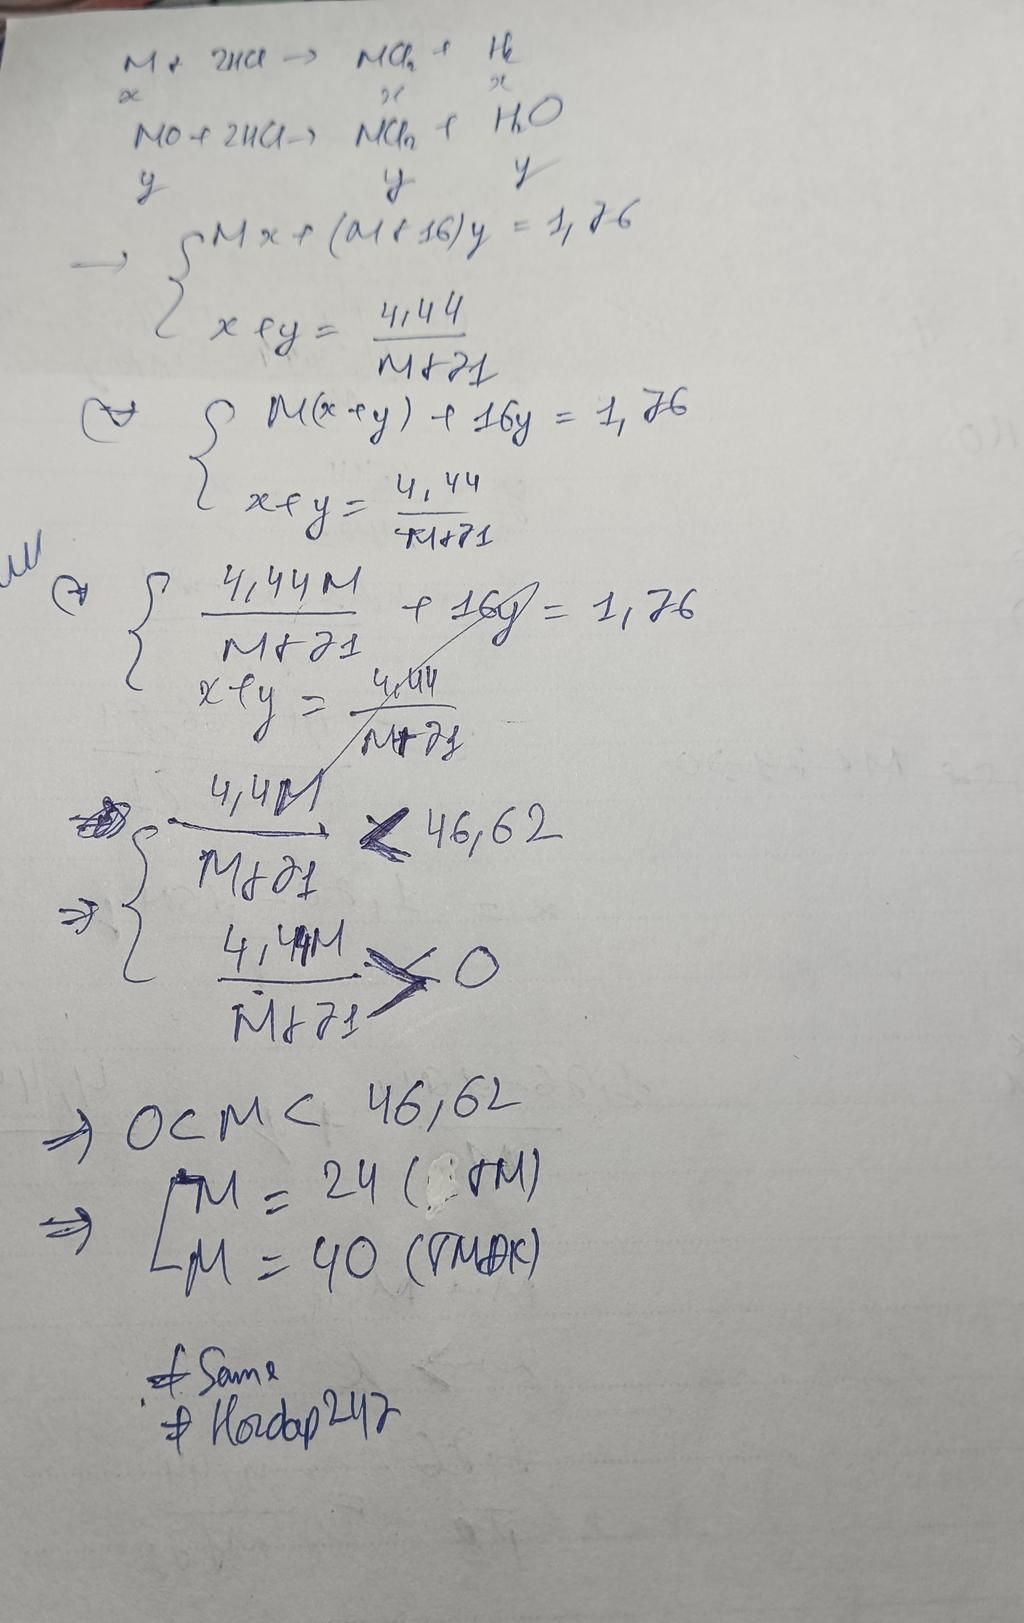 M + 2HCl → MCl₂ + H₂
x x x
MO + 2HCl → MCl₂ + H₂O
y y y
→ { Mx + (M+16)y = 1,76
x+y = 4,44 / M+71
⇔ { M(x+y) + 16y = 1,76
x+y = 4,44 / M+71
⇔ { 4,44M / M+71 + 16y = 1,76
x+y = 4,44 / M+71
⇒ { 4,4M / M+71 < 46,62
4,44M / M+71 > 0
⇒ 0 < M < 46,62
⇒ [ M = 24 ( TM)
M = 40 (TMĐK)
# Same
# Hoidap247